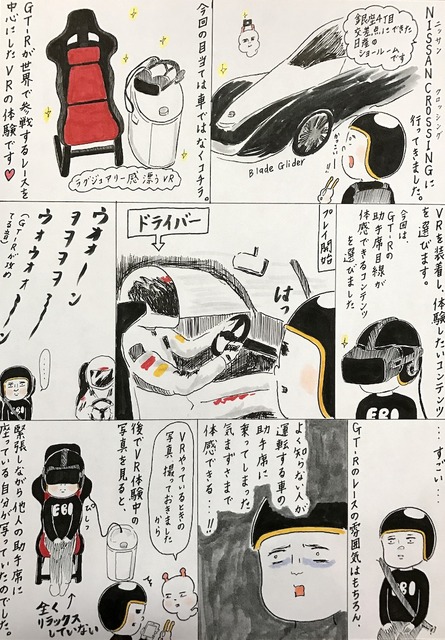 NISSAN CROSSINGに
ニッサン クロッシング
行ってきました。
銀座4丁目
交差点にできた
日産の
ショールーム
です
かっこいい!
Blade Glider
今回の目当ては車ではなくコチラ。
ラグジュアリー感漂うVR
GT-Rが世界で参戦するレースを
中心にしたVRの体験です♥
VRを装着し、体験したいコンテンツ
を選びます。
今回は、
GT-Rの
助手席目線が
体感できるコンテンツ
を選びました
EBI
プレイ開始
ドライバー
はっ
ウオォーン
ヲヲヲヲーン
ウォウォォーン
(GT-Rが攻め
てる音)
……
EBI
…すっすごい
GT-Rのレースの雰囲気はもちろん、
よく知らない人が
運転する車の
助手席に
乗ってしまった
気まずさまで
体感できる…!!
VRやっているときの
写真、撮っておきました
から
後でVR体験中の
写真を見ると、
EBI
緊張しながら他人の助手席に
座っている自分が写っていたのでした。
全く
リラックス
していない